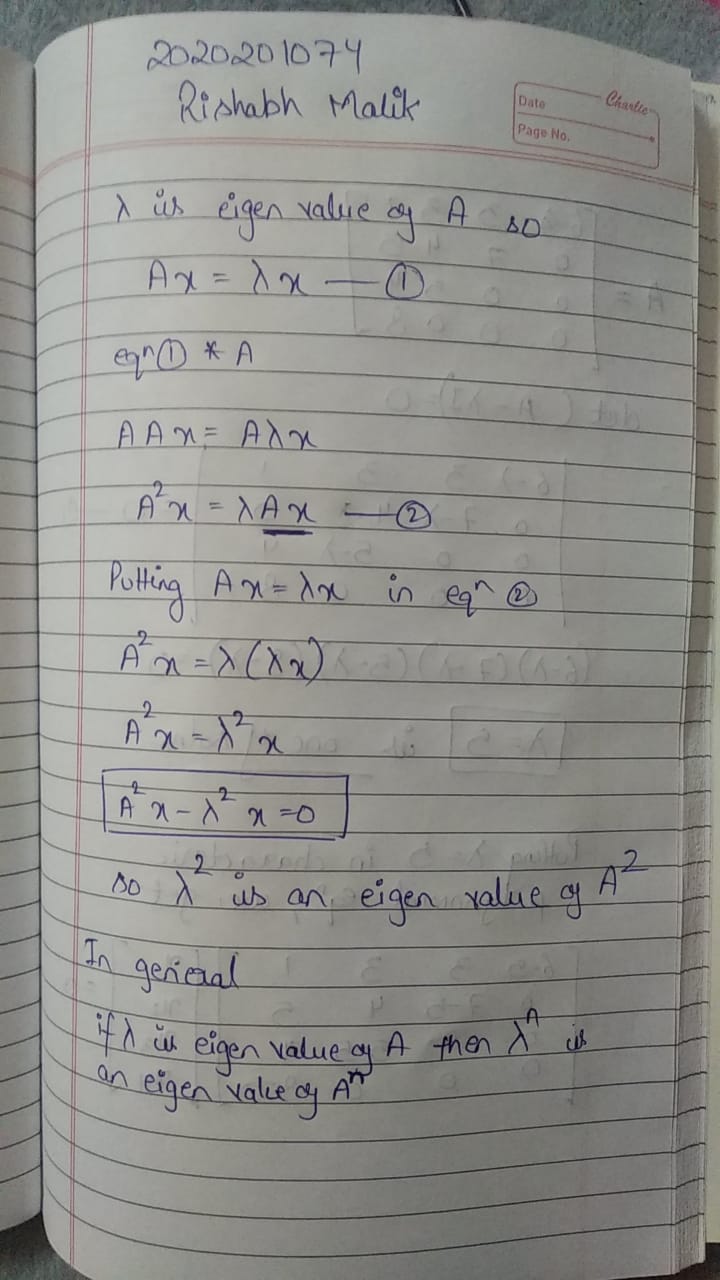 2020201074
Rishabh Malik
Charlie
Date
Page No.
λ is eigen value of A so
Ax = λx — ①
eqⁿ ① * A
AAx = Aλx
A²x = λAx — ②
Putting Ax = λx in eqⁿ ②
A²x = λ(λx)
A²x = λ²x
A²x - λ²x = 0
so λ² is an eigen value of A²
In general
if λ is eigen value of A then λⁿ is
an eigen value of Aⁿ